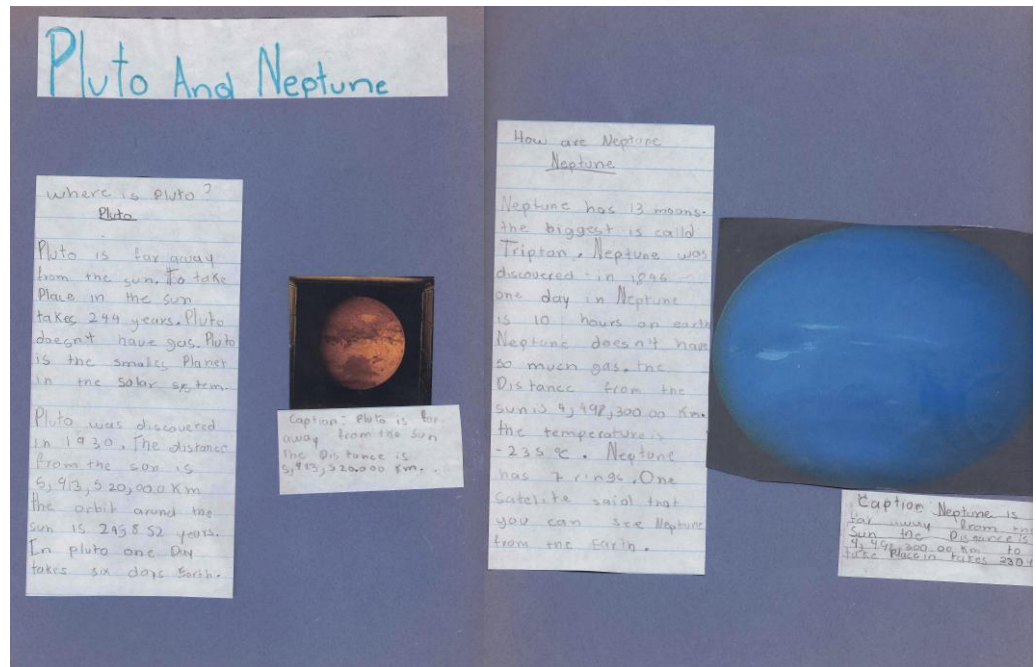 Pluto And Neptune
where is Pluto?
Pluto
Pluto is far away
from the sun. To take
Place in the sun
takes 244 years. Pluto
doesn't have gas. Pluto
is the smalles Planet
in the solar system.
Pluto was discovered
in 1930. The distance
from the sun is
5,913,520,00.0 Km
the orbit arund the
sun is 245852 years.
In pluto one Day
takes six days Earth.
Caption: Pluto is far
away from the sun
the Distance is
5,913,520.000 Km.
How are Neptune
Neptune
Neptune has 13 moons.
the biggest is calld
Tripton. Neptune was
discovered in 1846
one day in Neptune
is 10 hours on earth
Neptune doesn't have
so much gas. the
Distance from the
sun is 4,498,300.00 Km.
the temperature is
-235 °C. Neptune
has 7 rings. One
satelite said that
you can see Neptune
from the Earth.
Caption Neptune is
far away from the
Sun the Disgance is
4,498,300.00 Km to
take Place in takes